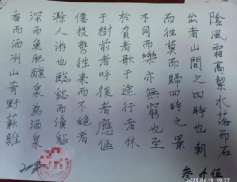 陰風霜高潔水落而石
出者山間之四時也朝
而往暮而歸四時之景
不同而樂亦無窮也至
於負者歌于途行者休
于樹前者呼後者應傴
僂提携往來而不絕者
滁人游也臨溪而漁溪
深而魚肥釀泉為酒泉
香而酒洌山肴野蔌雜